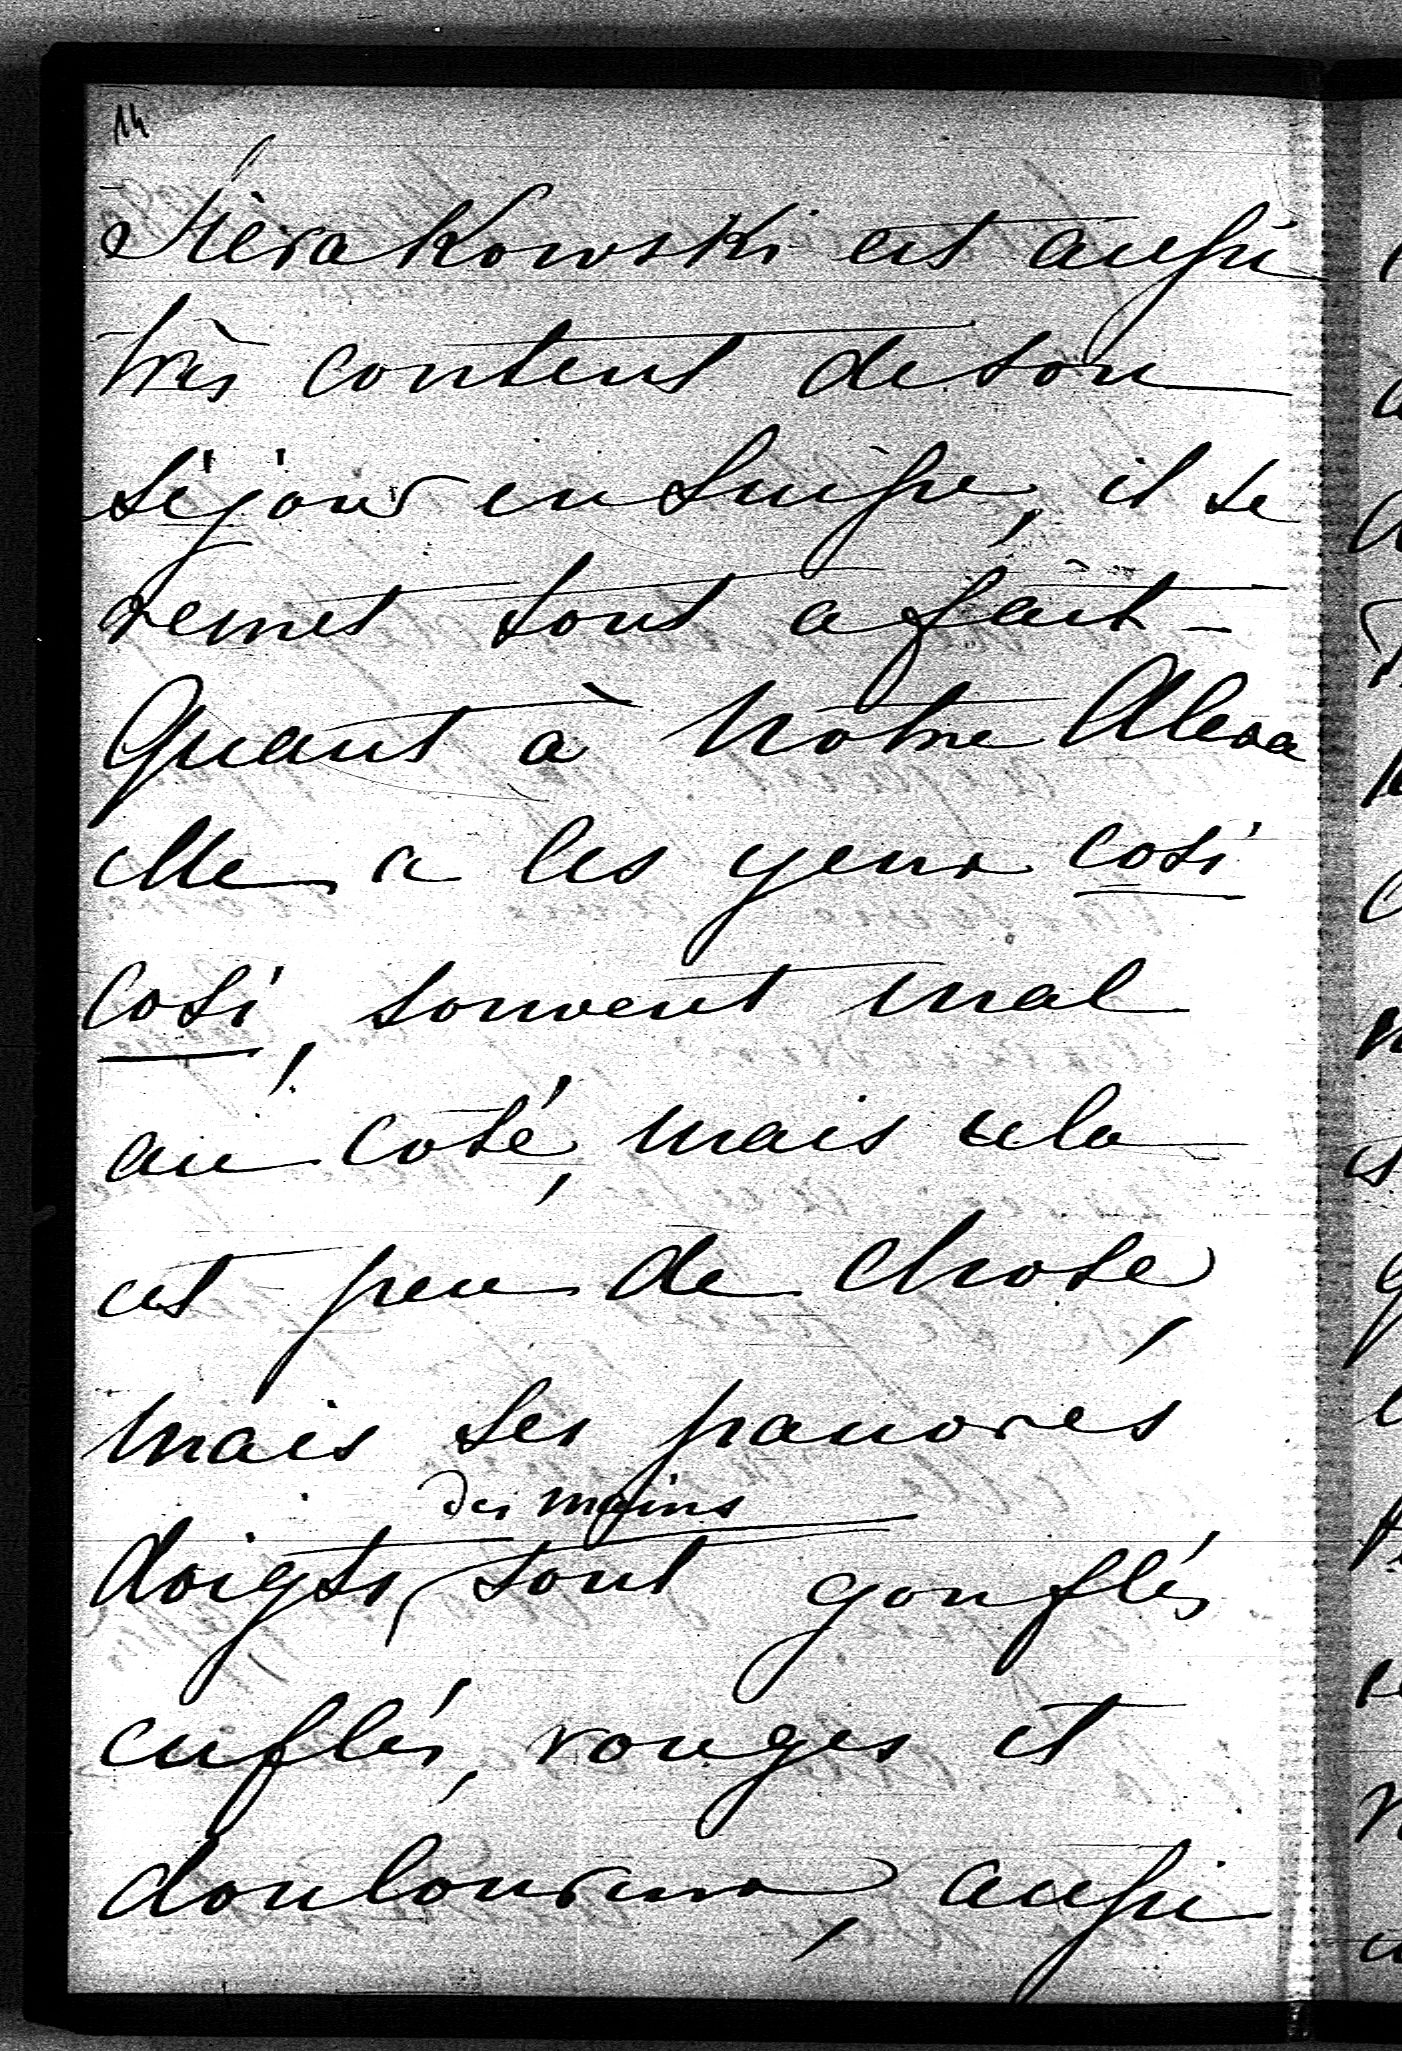 14
Siérakowski est aussi
très content de son
séjour en Suisse, il se
remet tout a fait –
Quant à Notre Alexa
elle a les yeux così
così, souvent mal
au coté, mais cela
est peu de chose,
mais ses pauvres
des mains
doigts, sont gonflés
enflés, rouges et
douloureux, aussi